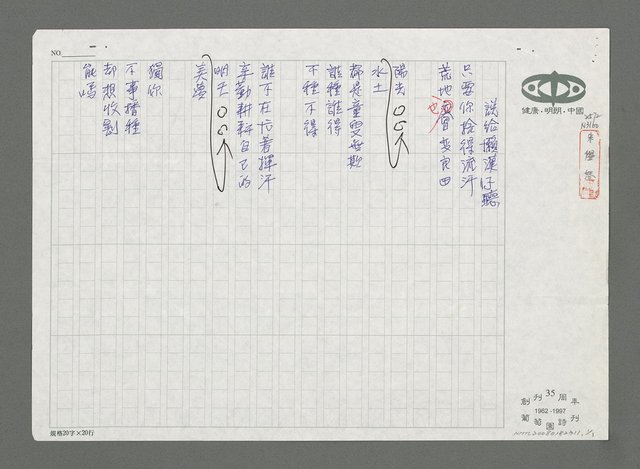 說給懶漢子聽
只要你捨得流汗
荒地也會變良田
陽光
水土
都是童叟無欺
誰種誰得
不種不得
誰不在忙著揮汗
辛勤耕耘自己的
明天
美夢
獨你
不事播種
却想收割
能嗎
NO.
健康・明朗・中國
創刊35周年
1962-1997
葡萄園詩刊
規格20字×20行